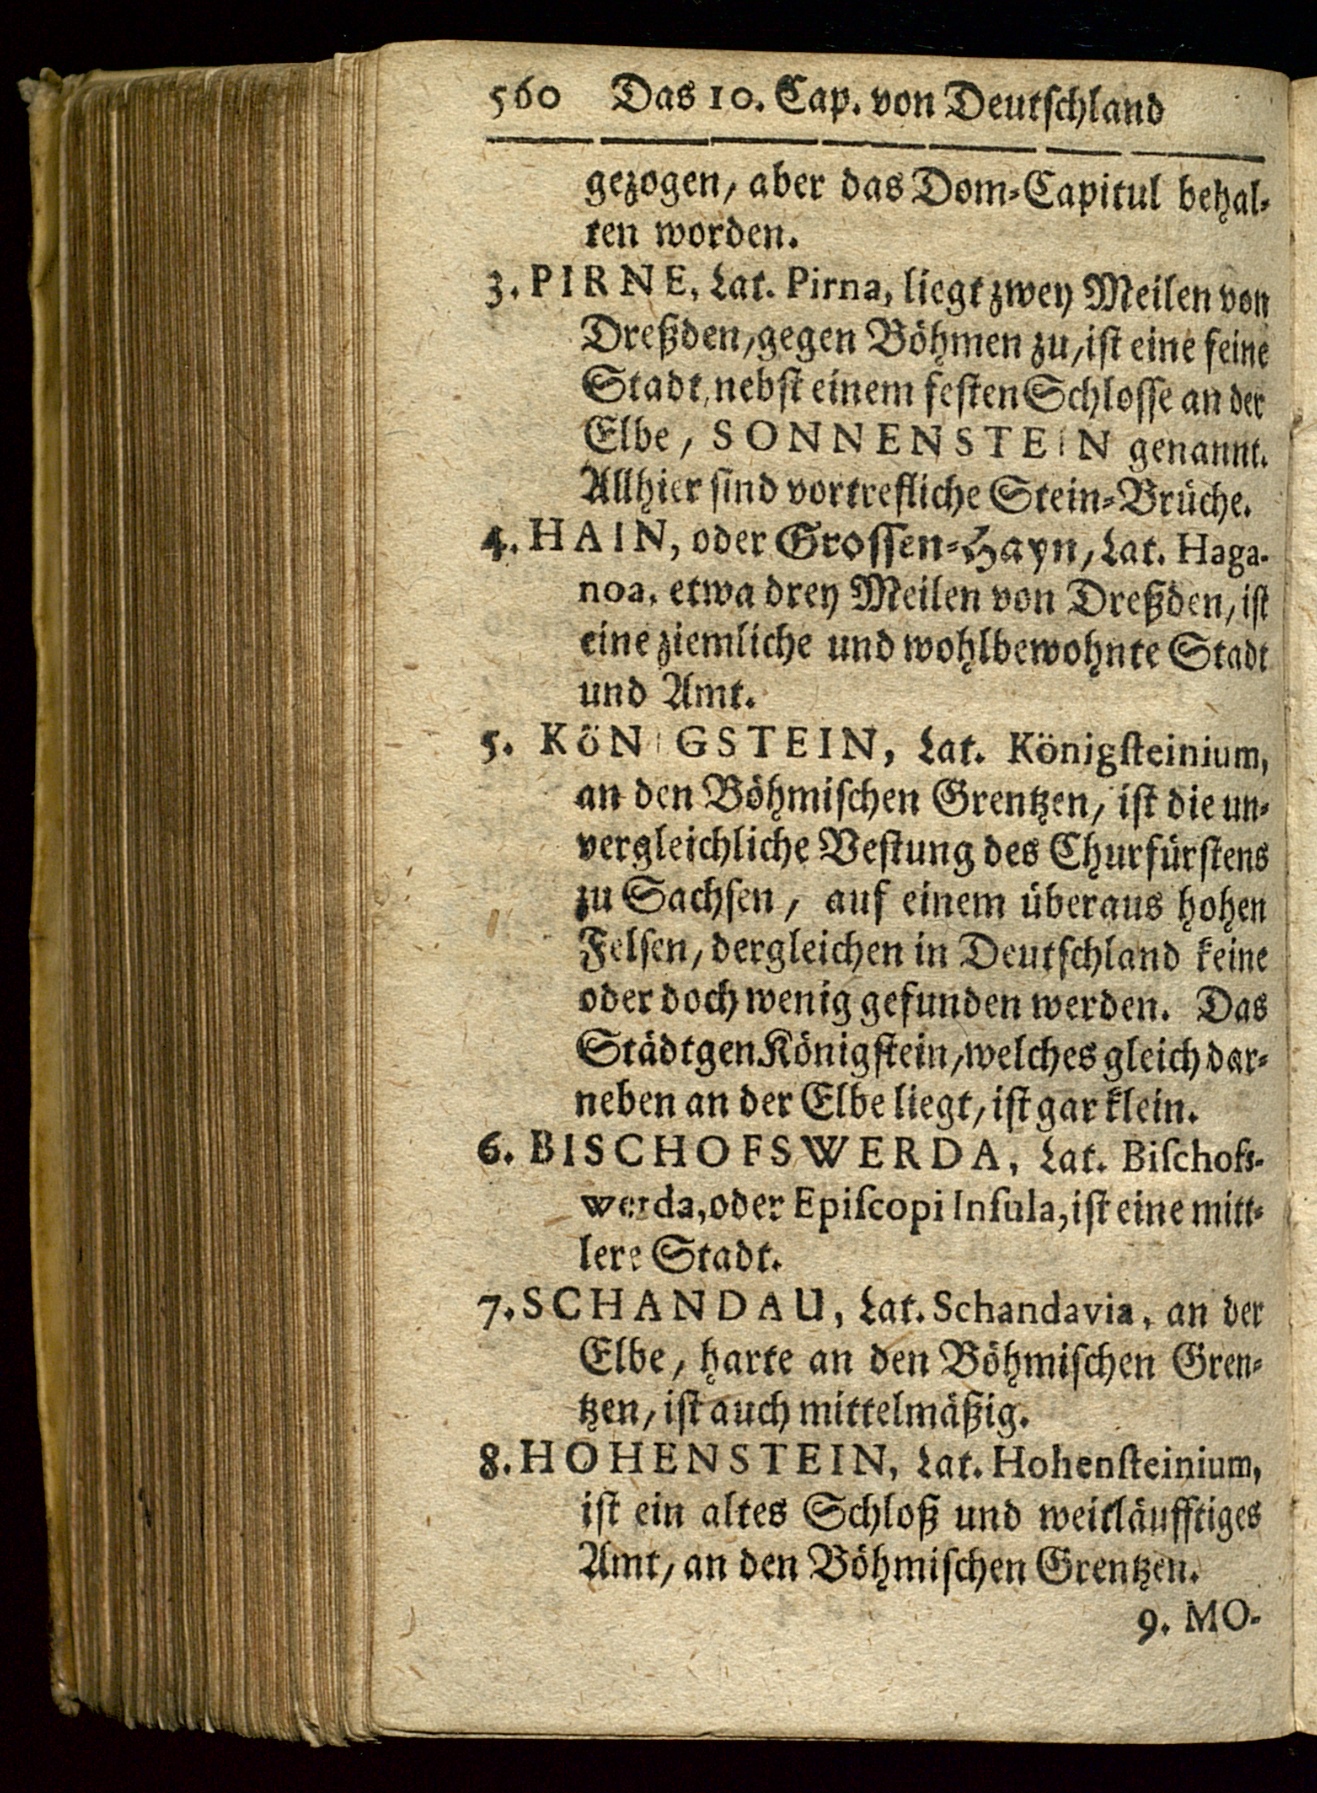 560 Das 10. Cap. von Deutſchland
gezogen, aber das Dom-Capitul behal-
ten worden.
3. PIRNE, Lat. Pirna, liegt zwey Meilen von
Dreßden, gegen Böhmen zu, iſt eine feine
Stadt, nebſt einem feſten Schloſſe an der
Elbe, SONNENSTEIN genannt.
Allhier ſind vortrefliche Stein-Brüche.
4. HAIN, oder Groſſen-Hayn, Lat. Haga-
noa, etwa drey Meilen von Dreßden, iſt
eine ziemliche und wohlbewohnte Stadt
und Amt.
5. KöNIGSTEIN, Lat. Königſteinium,
an den Böhmiſchen Grentzen, iſt die un-
vergleichliche Veſtung des Churfürſtens
zu Sachſen, auf einem überaus hohen
Felſen, dergleichen in Deutſchland keine
oder doch wenig gefunden werden. Das
Städtgen Königſtein, welches gleich dar-
neben an der Elbe liegt, iſt gar klein.
6. BISCHOFSWERDA, Lat. Biſchofs-
werda, oder Epiſcopi Inſula, iſt eine mitt-
lere Stadt.
7. SCHANDAU, Lat. Schandavia, an der
Elbe, harte an den Böhmiſchen Gren-
tzen, iſt auch mittelmäßig.
8. HOHENSTEIN, Lat. Hohenſteinium,
iſt ein altes Schloß und weitläufftiges
Amt, an den Böhmiſchen Grentzen.
9. MO-